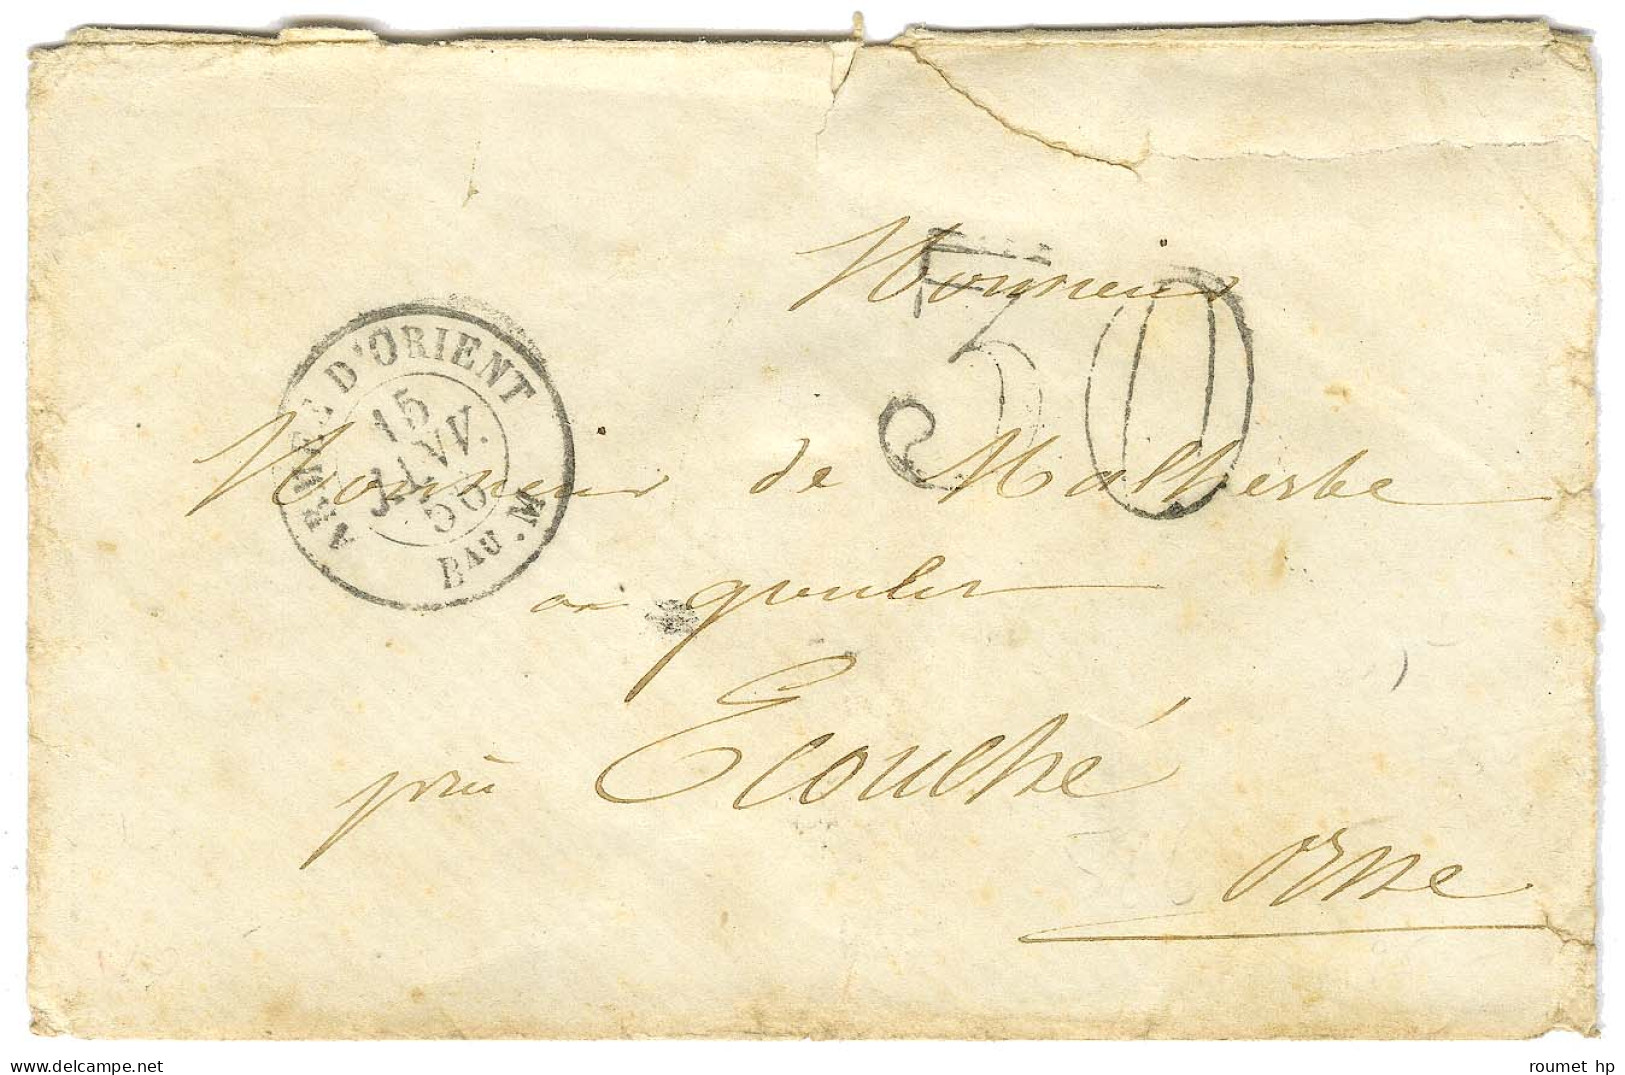 Monsieur
30
ARMÉE D'ORIENT
15
JANV.
56
BAU. M
Monsieur de Malherbe
près Ecouché
Orne
roumet hp
www.delcampe.net